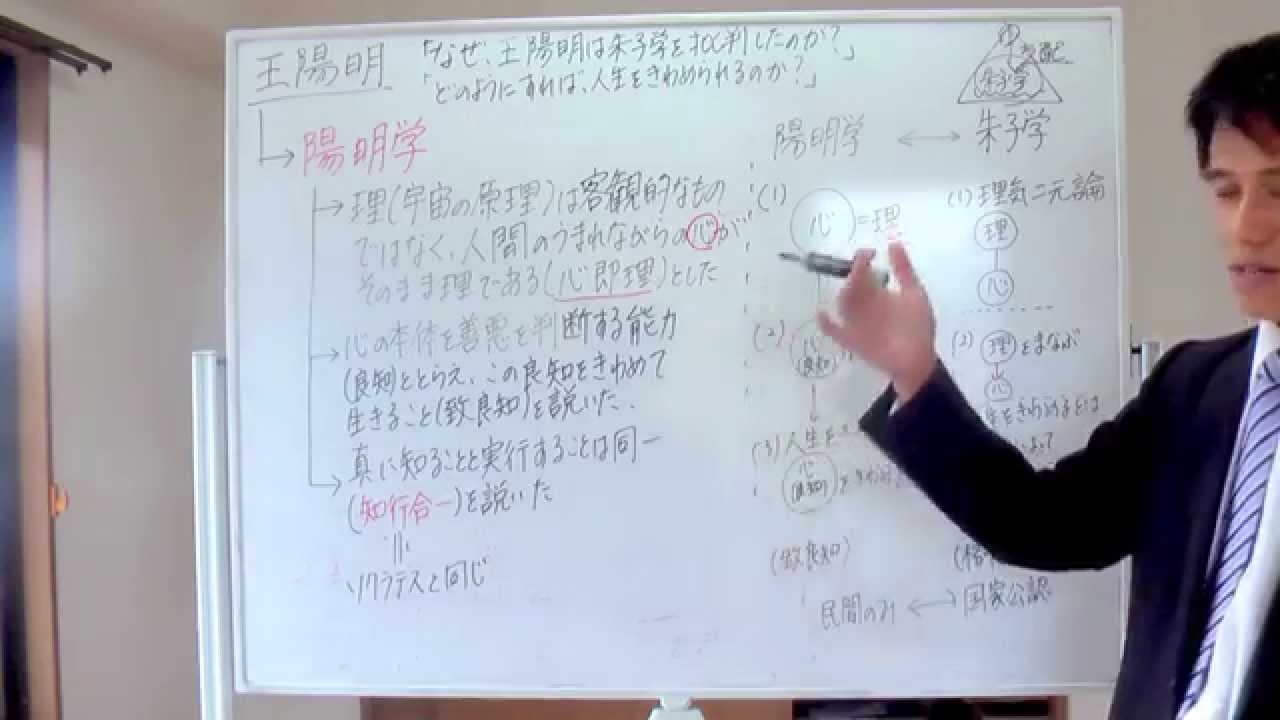 王陽明
「なぜ、王陽明は朱子学を批判したのか?」
「どのようにすれば、人生をきわめられるのか?」
陽明学
理(宇宙の原理)は客観的なもの
ではなく、人間のうまれながらの心が
そのまま理である(心即理)とした
心の本体を善悪を判断する能力
(良知)ととらえ、この良知をきわめて
生きること(致良知)を説いた.
真に知ることと実行することは同一
(知行合一)を説いた
ソクラテスと同じ
陽明学 ↔ 朱子学
(1)
心=理
(2)
心
(良知)
(3)人生を
心
(良知)
(致良知)
民間のみ ↔ 国家公認
支配
(1)理気二元論
理
心
(2)理をまなぶ
心